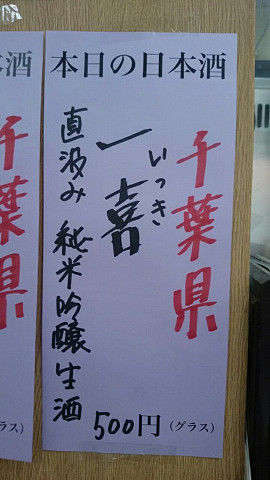 本日の日本酒
千葉県
いっき
一喜
直汲み 純米吟醸生酒
500円（グラス）
酒
千葉県
ラス）